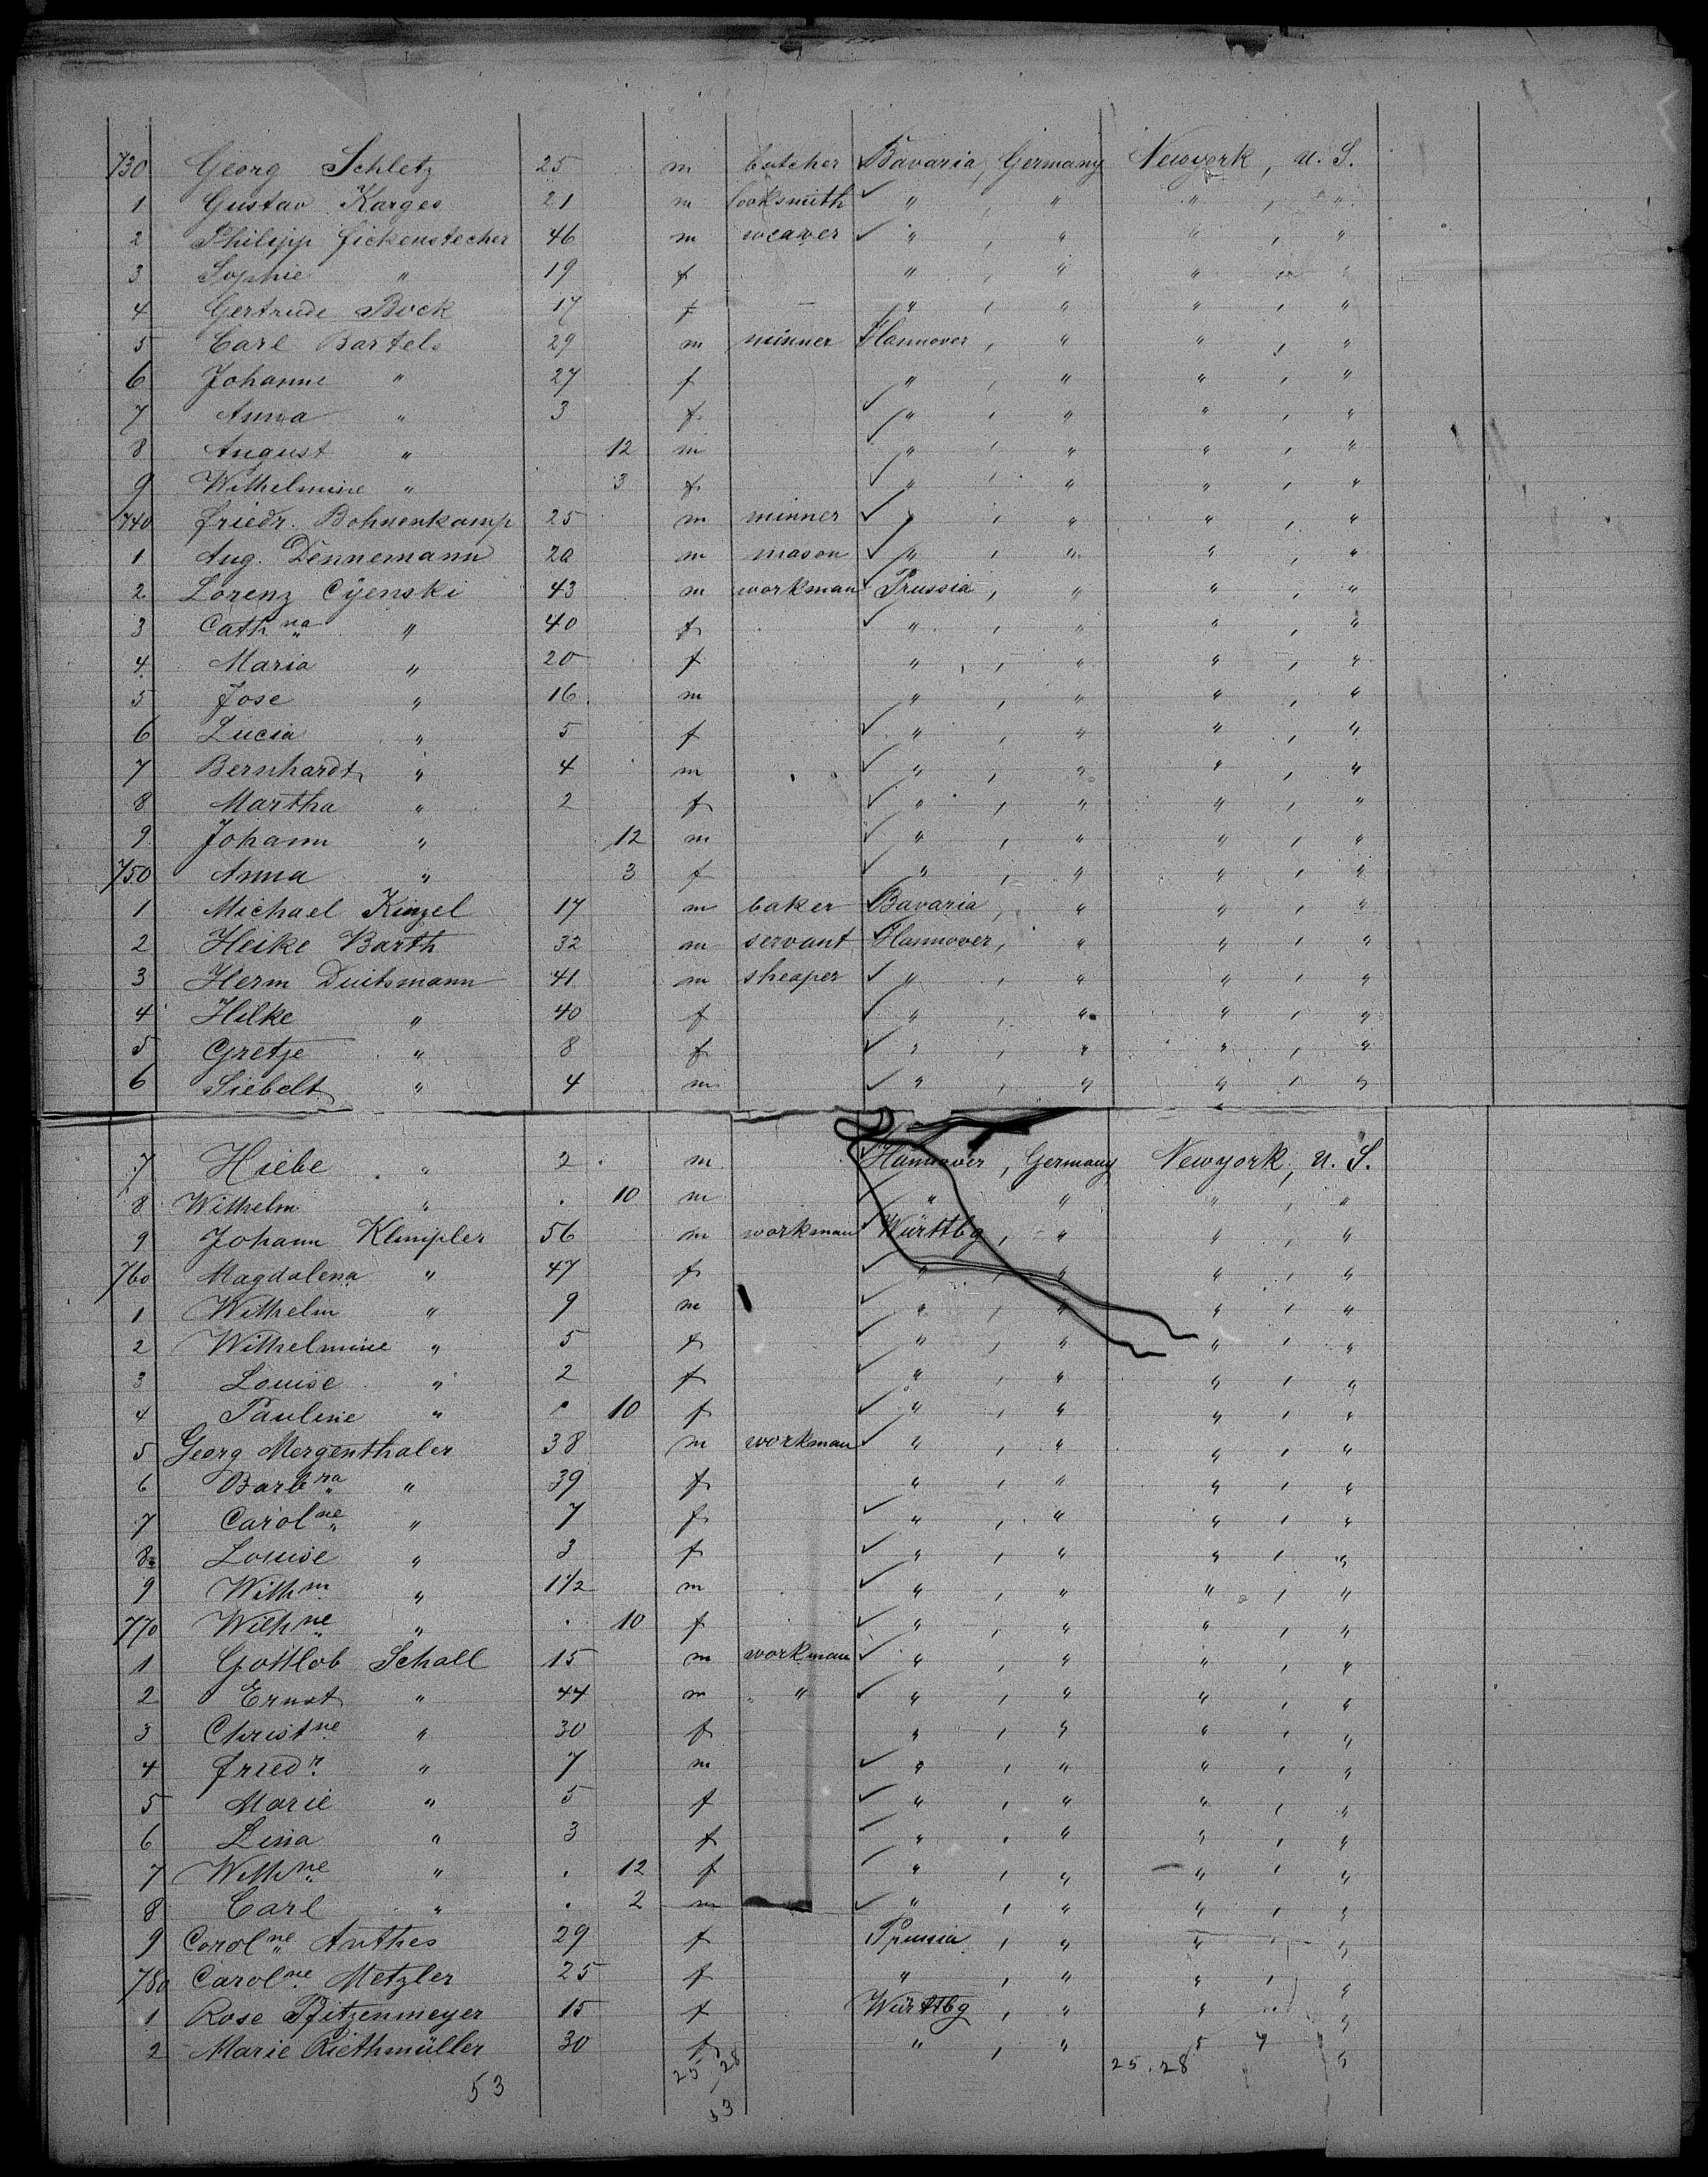 730 Georg Schletz 25 m butcher Bavaria, Germany Newyork, U. S.
1 Gustav Karges 21 m looksmith " , " " , "
2 Philipp fickenstecher 46 m weawer " , " " , "
3 Sophie " 19 f " , " " , "
4 Gertrude Bock 17 f — " , " " , "
5 Carl Bartels 29 m minner Hannover , " " , "
6 Johanne " 27 f " , " " , "
7 Anna " 3 f " , " " , "
8 August " 12 m " , " " , "
9 Wilhelmine " 3 f " , " " , "
740 friedr. Bohnenkamp 25 m minner " , " " , "
1 Aug. Dennemann 20 m mason " , " " , "
2 Lorenz Cÿenski 43 m workman Prussia , " " , "
3 Cathna " 40 f " , " " , "
4 Maria " 20 f " , " " , "
5 Jose " 16 m " , " " , "
6 Lucia " 5 f " , " " , "
7 Bernhardt " 4 m " , " " , "
8 Martha " 2 f " , " " , "
9 Johann " 12 m " , " " , "
750 Anna " 3 f " , " " , "
1 Michael Kinzel 17 m baker Bavaria , " " , "
2 Heike Barth 32 m servant Hannover , " " , "
3 Herm Duitsmann 41 m sheaper " , " " , "
4 Hilke " 40 f " , " " , "
5 Gretje " 8 f " , " " , "
6 Siebelt " 4 m " , " " , "
7 Hiebe " 2 m Hannover , Germany Newyork, U. S.
8 Wilhelm " . 10 m " , " " , "
9 Johann Klimpler 56 m workman Württbg , " " , "
760 Magdalena " 47 f " , " " , "
1 Wilhelm " 9 m " , " " , "
2 Wilhelmine " 5 f " , " " , "
3 Louise " 2 f " , " " , "
4 Pauline " . 10 f " , " " , "
5 Georg Mergenthaler 38 m workman " , " " , "
6 Barbra " 39 f " , " " , "
7 Carolne " 7 f " , " " , "
8 Louise " 3 f " , " " , "
9 Wilhm " 1 1/2 m " , " " , "
770 Wilhne " . 10 f " , " " , "
1 Gottlob Schall 15 m workman " , " " , "
2 Ernst " 44 m " " , " " , "
3 Christne " 30 f " , " " , "
4 friedr. " 7 m " , " " , "
5 Marie " 5 f " , " " , "
6 Lina " 3 f " , " " , "
7 Wilhne " . 12 f " , " " , "
8 Carl " . 2 m " , " " , "
9 Carolne Anthes 29 f Prussia , " " , "
780 Carolne Metzler 25 f " , " " , "
1 Rose Pfitzenmeyer 15 f Württbg , " " , "
2 Marie Riethmüller 30 f " , " " " "
53 25, 28 25. 28
53